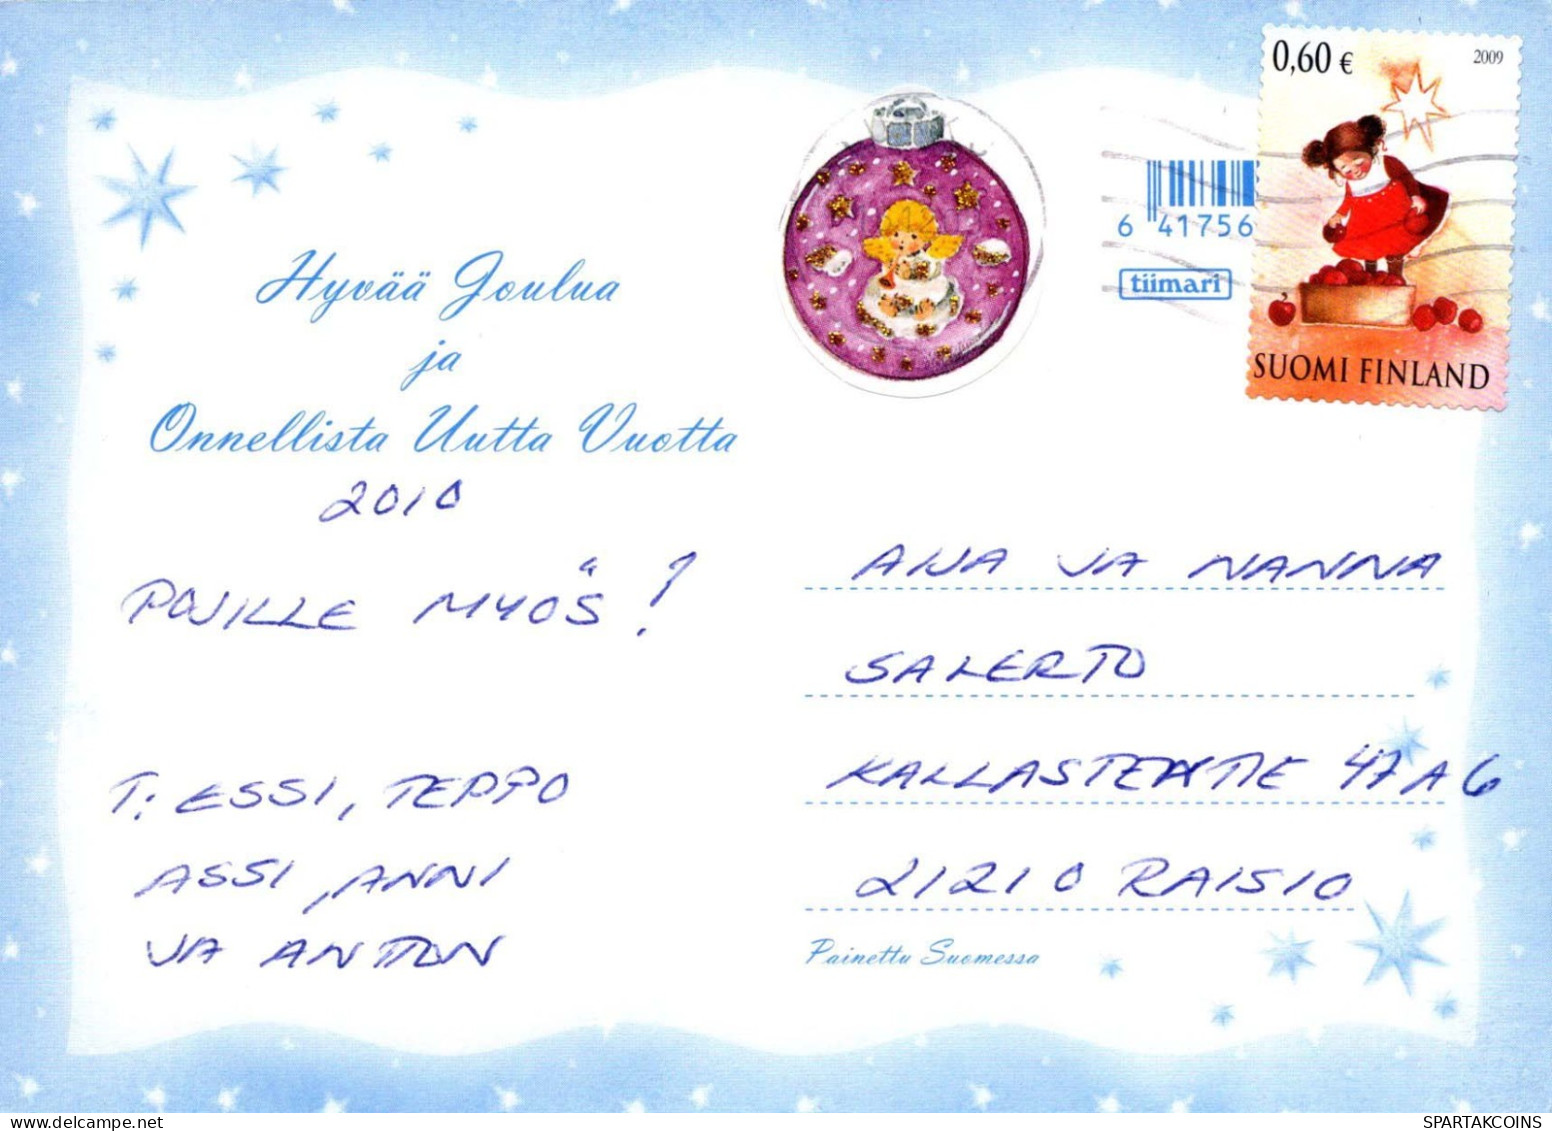 0,60 €
2009
SUOMI FINLAND
6 41756
tiimari
Hyvää Joulua
ja
Onnellista Uutta Vuotta
2010
POJILLE MYÖS!
T: ESSI, TEPPO
ASSI, ANNI
JA ANTTON
AIJA JA NANNA
SALERTO
47 A 6
21210 RAISIO
Painettu Suomessa
delcampe.net
SPARTAKCOINS